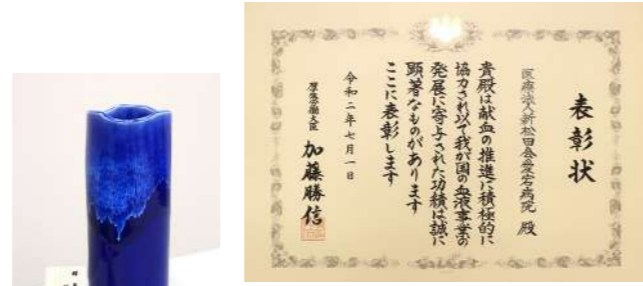 表彰状
医療法人新松田会愛宕病院 殿
貴殿は献血の推進に積極的に
協力され以て我が国の血液事業の
発展に寄与された功績は誠に
顕著なものがあります
ここに表彰します
令和二年七月一日
厚生労働大臣 加藤勝信